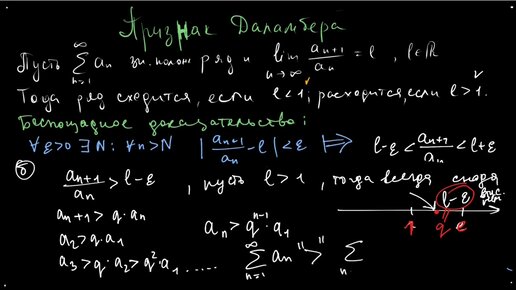 Признак Даламбера
Пусть $\sum_{n=1}^{\infty} a_n$ зн. полож ряд и $\lim_{n\to\infty} \frac{a_{n+1}}{a_n} = l$, $l \in \mathbb{R}$
Тогда ряд сходится, если l < 1; расходится, если l > 1.
Беспощадное доказательство:
∀ε>0 ∃N: ∀n>N $\left|\frac{a_{n+1}}{a_n} - l\right| < ε$ ⟹ $l-ε < \frac{a_{n+1}}{a_n} < l+ε$
б) $\frac{a_{n+1}}{a_n} > l-ε$, пусть l > 1, тогда всегда
$a_{n+1} > q \cdot a_n$
$a_2 > q \cdot a_1$
$a_3 > q \cdot a_2 > q^2 \cdot a_1$ .....
$a_n > q^{n-1} \cdot a_1$
$\sum_{n=1}^{\infty} a_n$ ">" $\sum_{n}$
l-ε
1 q l